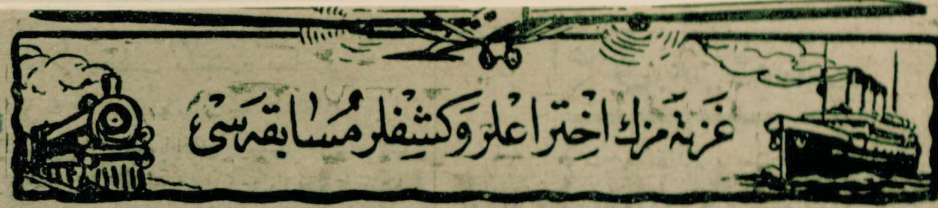 غَزتَه مزك اخْتراعْلر وَكشِفلر مُسَابقه سی